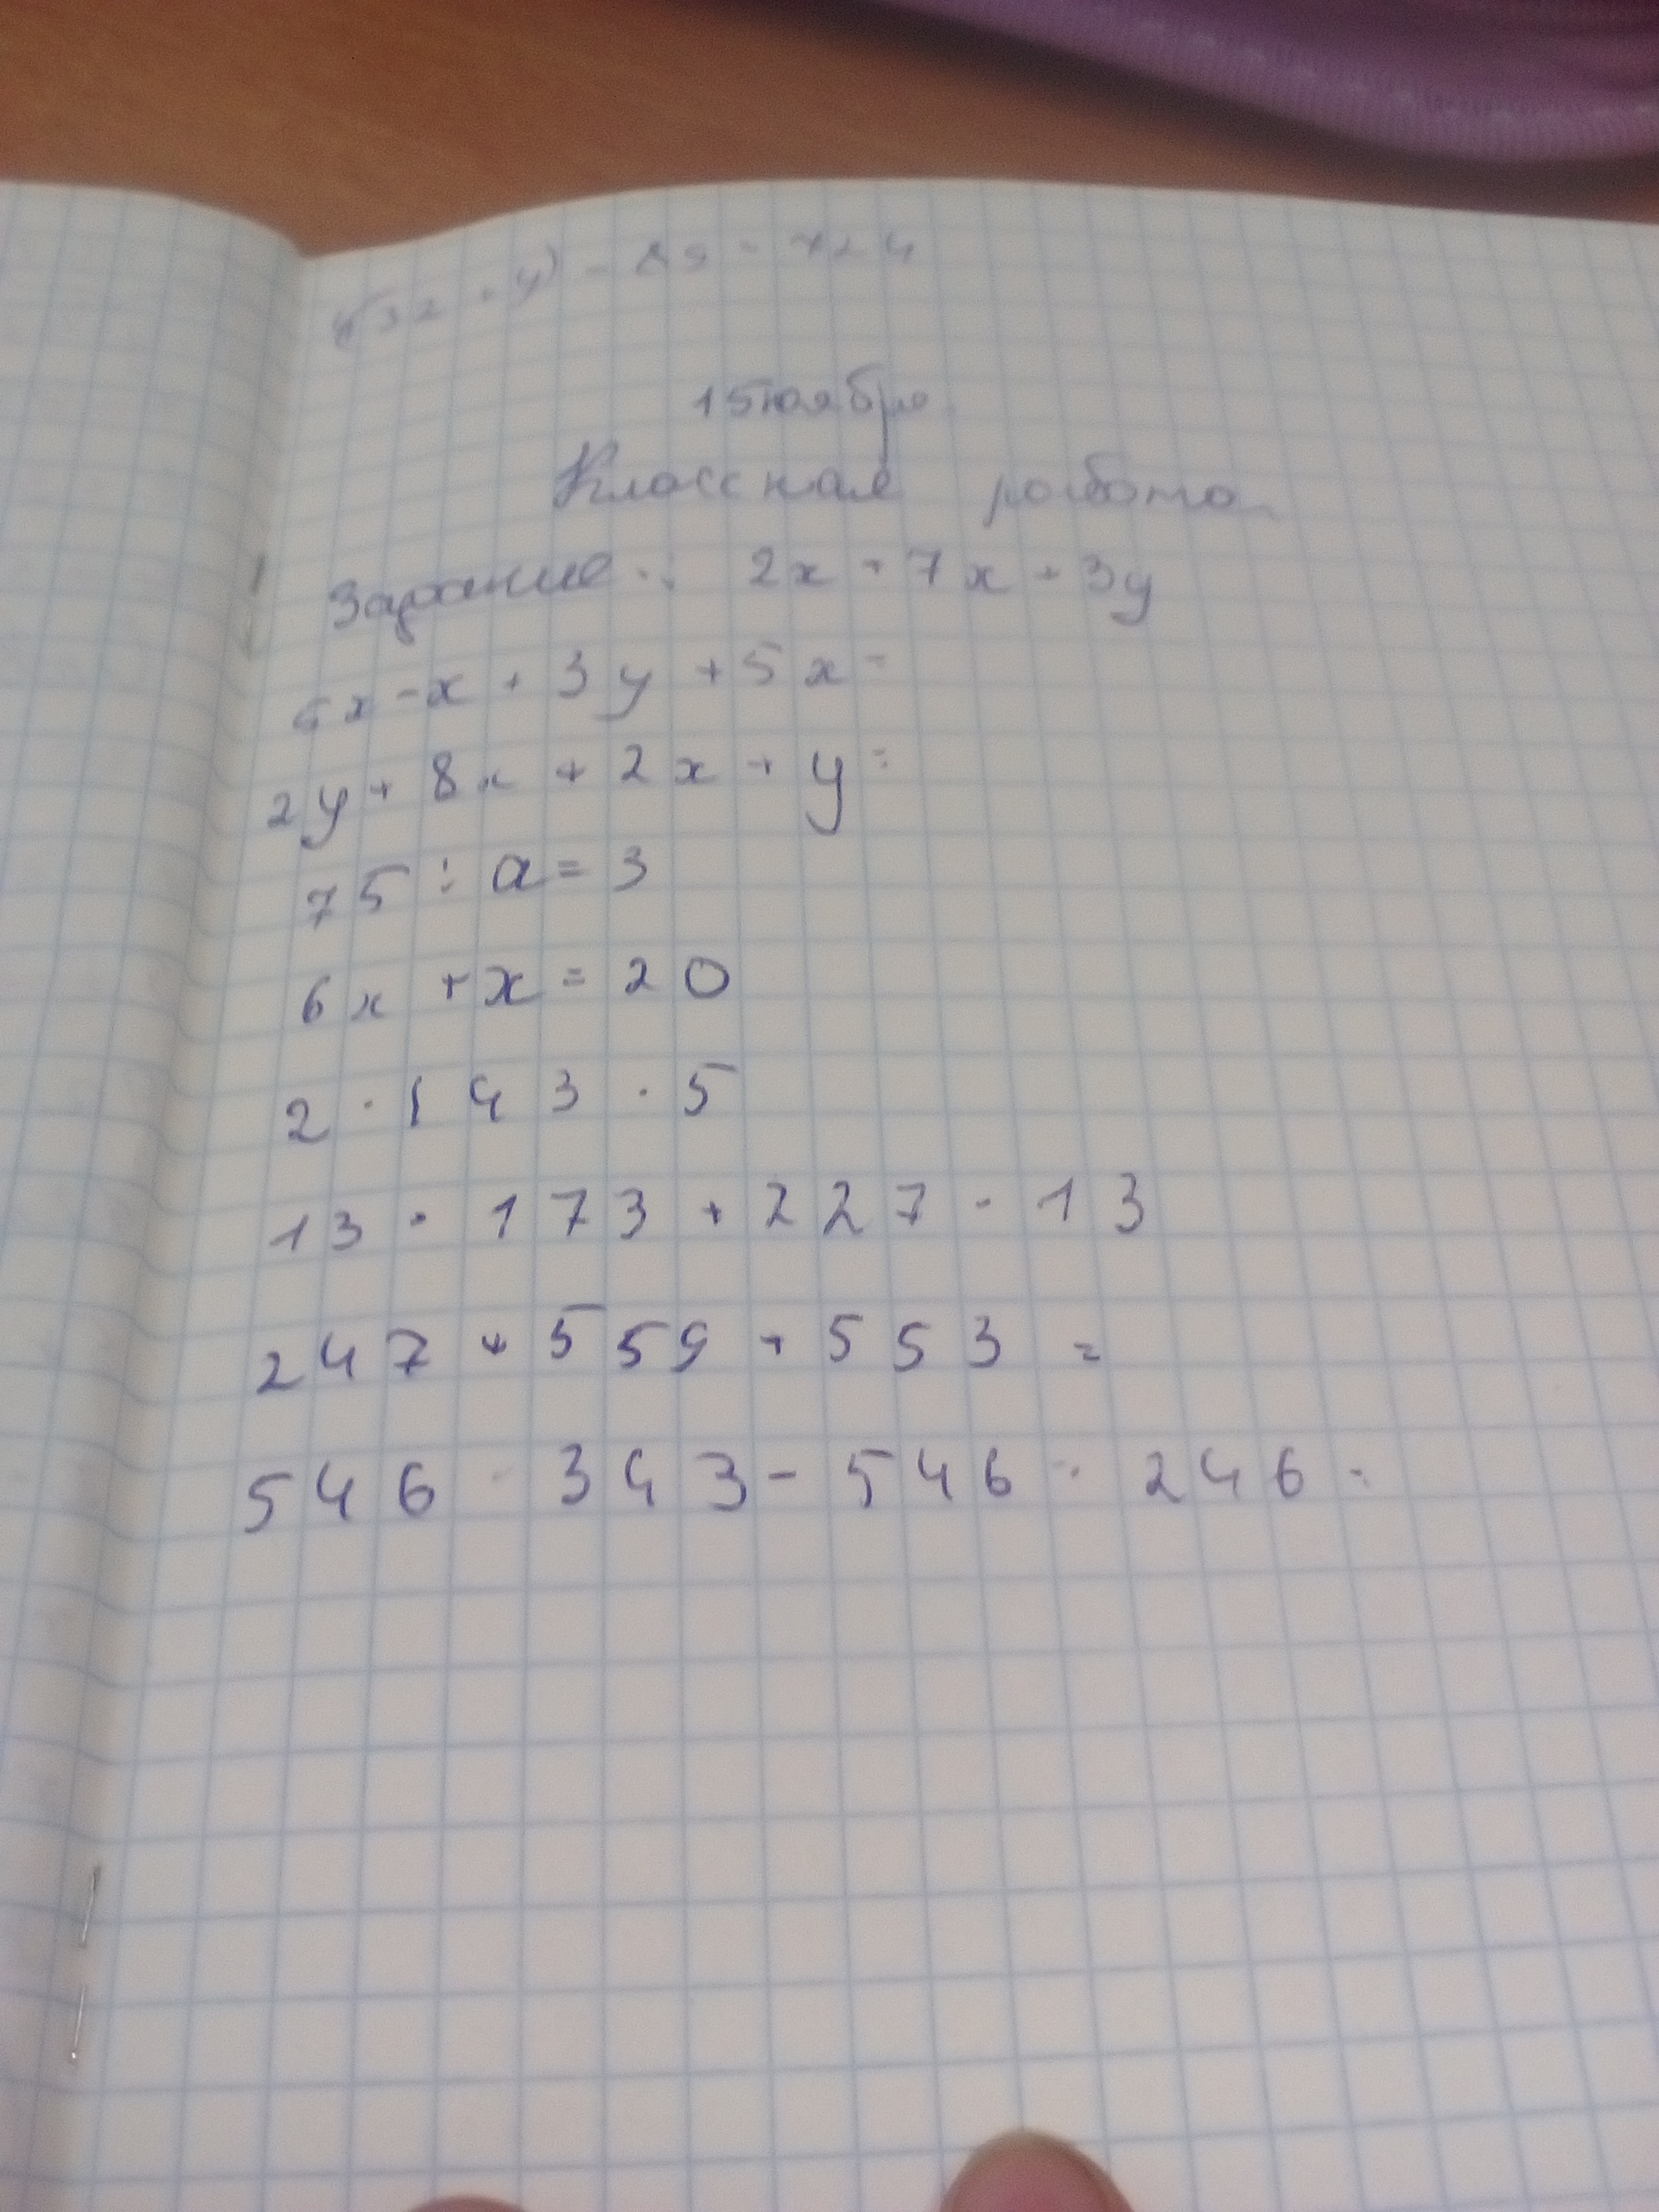 + y) - 89 = 724
15 ноября
Классная работа
Задание: 2x + 7x + 3y
x - x + 3y + 5x =
2y + 8x + 2x + y =
75 : a = 3
6x + x = 20
2 · 143 · 5
13 · 173 + 227 · 13
247 + 559 + 553 =
546 · 343 - 546 · 246 =